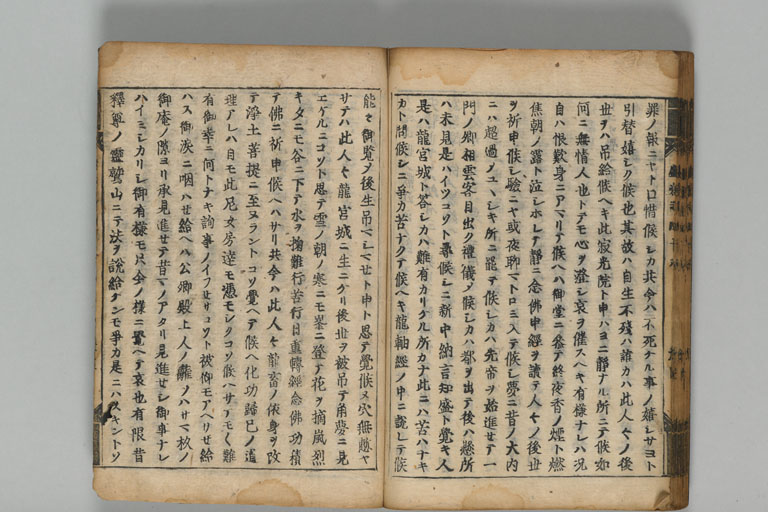 罪ノ報ニヤト口惜候シカ共今ハ不死ケル事ノ嬉シサヨト
引替嬉シク候也其故ハ自生不残ハ誰カハ此人々ノ後
世ヲハ吊給候ヘキ此寂光院ト申ハヨニ静ナル所ニテ候如
何ニ無情人也トテモ心ヲ澄シ哀ヲ催スヘキ有様ナレハ况
自ハ恨歎身ニアマリテ候ヘハ御堂ニ参テ終夜香ノ煙ト燃
焦朝ノ露ト泣シホレテ静ニ念佛申経ヲ讀テ人々ノ後世
ヲ祈申候シ驗ニヤ或夜聊マトロミ入テ候シ夢ニ昔ノ大内
ニハ超過ノユヽシキ所ニ罷テ候シカハ先帝ヲ始進セテ一
門ノ卿相雲客目出ク禮儀ノ候シカハ都ヲ出テ後ハ懸所
ハ未見是ハイツコソト尋候シニ新中納言知盛ト覺キ人
是ハ龍宮城ト答シカハ難有カリケル所カナ此ニハ苦ハナキ
カト問候シニ爭カ苦ナクテ候ヘキ龍軸經ノ中ニ說レテ候
能々御覧ノ後生吊マシマセト申ト思テ覺候ヌ穴無慙ヤ
サテハ此人々龍宮城ニ生ニケリ後世ヲ被吊テ角夢ニ見
エケルニコソト思テ雪ノ朝ノ寒ニモ峯ニ登テ花ヲ摘嵐烈
キタニモ谷ニ下テ水ヲ掬難行苦行日重轉經念佛功積
テ佛ニ祈申候ヘハサリ共今ハ此人々龍畜ノ依身ヲ改
テ浄土菩提ニ至ヌラントコソ覺ヘテ候ヘ化功歸已ノ道
理アレハ自モ此尼女房達モ憑モシクコソ候ヘサテモ々難
有御幸ニ何トナキ詢事ノイフセサコソト被仰モアヘリセ給
ハス御涙ニ咽ハセ給ヘハ公卿殿上人ノ籬ノハサマ枚ノ
御庵ノ隙ヨリ承見進セテ昔マノアタリ見進セシ御事ナレ
ハイミシカリシ御有様モ只今ノ様ニ覺ヘテ哀也有限昔
釋尊ノ靈鷲山ニテ法ヲ說給ケンモ爭カ是ニハスキントソ